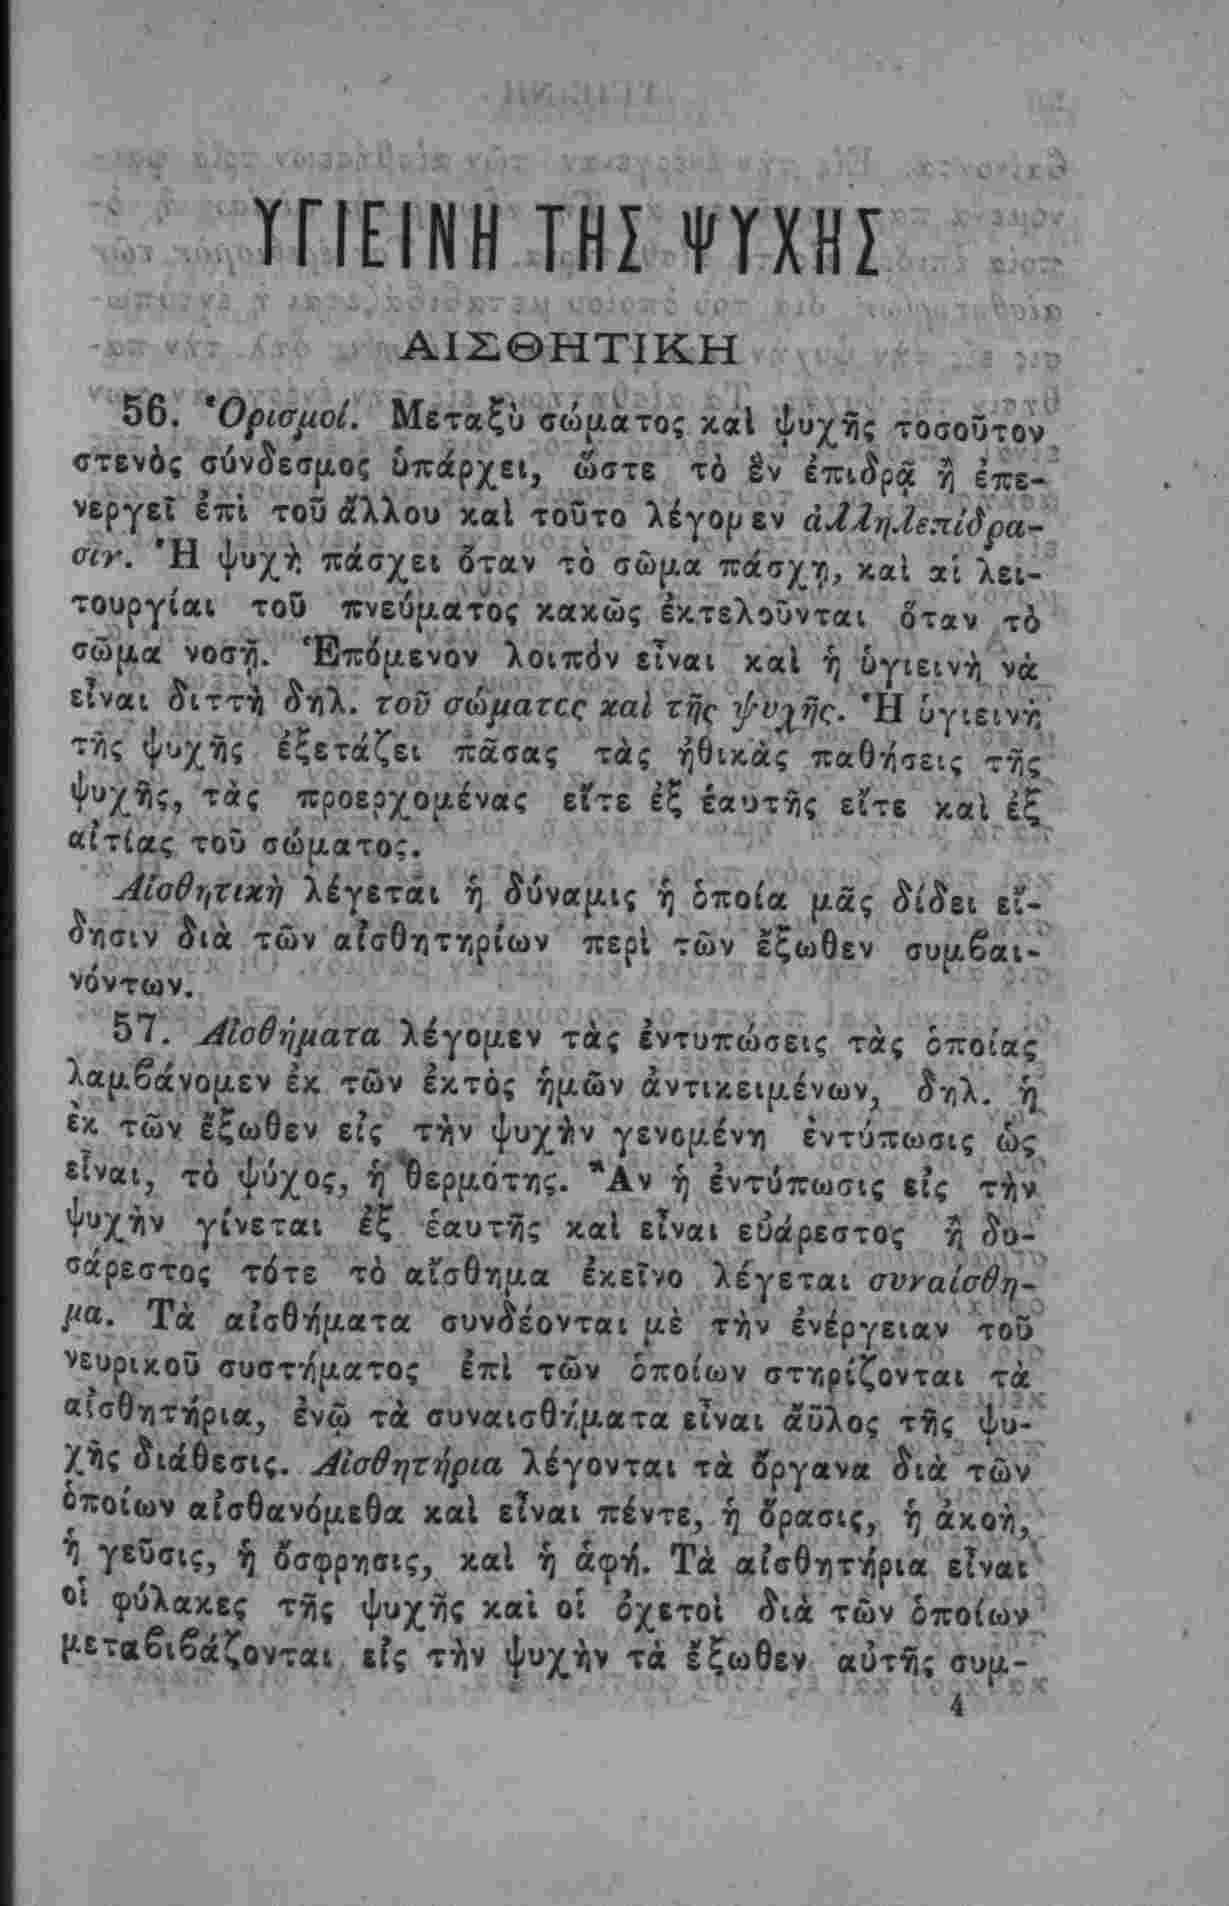 ΥΓΙΕΙΝΗ ΤΗΣ ΨΥΧΗΣ
ΑΙΣΘΗΤΙΚΗ
56. Ὁρισμοί. Μεταξὺ σώματος καὶ ψυχῆς τοσοῦτον
στενὸς σύνδεσμος ὑπάρχει, ὥστε τὸ ἓν ἐπιδρᾷ ἢ ἐπε-
νεργεῖ ἐπὶ τοῦ ἄλλου καὶ τοῦτο λέγομεν ἀλληλεπίδρα-
σιν. Ἡ ψυχὴ πάσχει ὅταν τὸ σῶμα πάσχῃ, καὶ αἱ λει-
τουργίαι τοῦ πνεύματος κακῶς ἐκτελοῦνται ὅταν τὸ
σῶμα νοσῇ. Ἑπόμενον λοιπόν εἶναι καὶ ἡ ὑγιεινὴ νὰ
εἶναι διττὴ δηλ. τοῦ σώματος καὶ τῆς ψυχῆς. Ἡ ὑγιεινὴ
τῆς ψυχῆς ἐξετάζει πᾶσας τὰς ἠθικὰς παθήσεις τῆς
ψυχῆς, τὰς προερχομένας εἴτε ἐξ ἑαυτῆς εἴτε καὶ ἐξ
αἰτίας τοῦ σώματος.
Αἰσθητικὴ λέγεται ἡ δύναμις ἡ ὁποία μᾶς δίδει εἴ-
δησιν διὰ τῶν αἰσθητηρίων περὶ τῶν ἔξωθεν συμϐαι-
νόντων.
57. Αἰσθήματα λέγομεν τὰς ἐντυπώσεις τὰς ὁποίας
λαμϐάνομεν ἐκ τῶν ἐκτὸς ἡμῶν ἀντικειμένων, δηλ. ἡ
ἐκ τῶν ἔξωθεν εἰς τὴν ψυχὴν γενομένη ἐντύπωσις ὡς
εἶναι, τὸ ψύχος, ἡ θερμότης. Ἂν ἡ ἐντύπωσις εἰς τὴν
ψυχὴν γίνεται ἐξ ἑαυτῆς καὶ εἶναι εὐάρεστος ἢ δυ-
σάρεστος τότε τὸ αἴσθημα ἐκεῖνο λέγεται συναίσθη-
μα. Τὰ αἰσθήματα συνδέονται μὲ τὴν ἐνέργειαν τοῦ
νευρικοῦ συστήματος ἐπὶ τῶν ὁποίων στηρίζονται τὰ
αἰσθητήρια, ἐνῷ τὰ συναισθήματα εἶναι ἄϋλος τῆς ψυ-
χῆς διάθεσις. Αἰσθητήρια λέγονται τὰ ὄργανα διὰ τῶν
ὁποίων αἰσθανόμεθα καὶ εἶναι πέντε, ἡ ὅρασις, ἡ ἀκοὴ,
ἡ γεῦσις, ἡ ὄσφρησις, καὶ ἡ ἁφή. Τὰ αἰσθητήρια εἶναι
οἱ φύλακες τῆς ψυχῆς καὶ οἱ ὀχετοὶ διὰ τῶν ὁποίων
μεταϐιϐάζονται εἰς τὴν ψυχὴν τὰ ἔξωθεν αὐτῆς συμ-
4